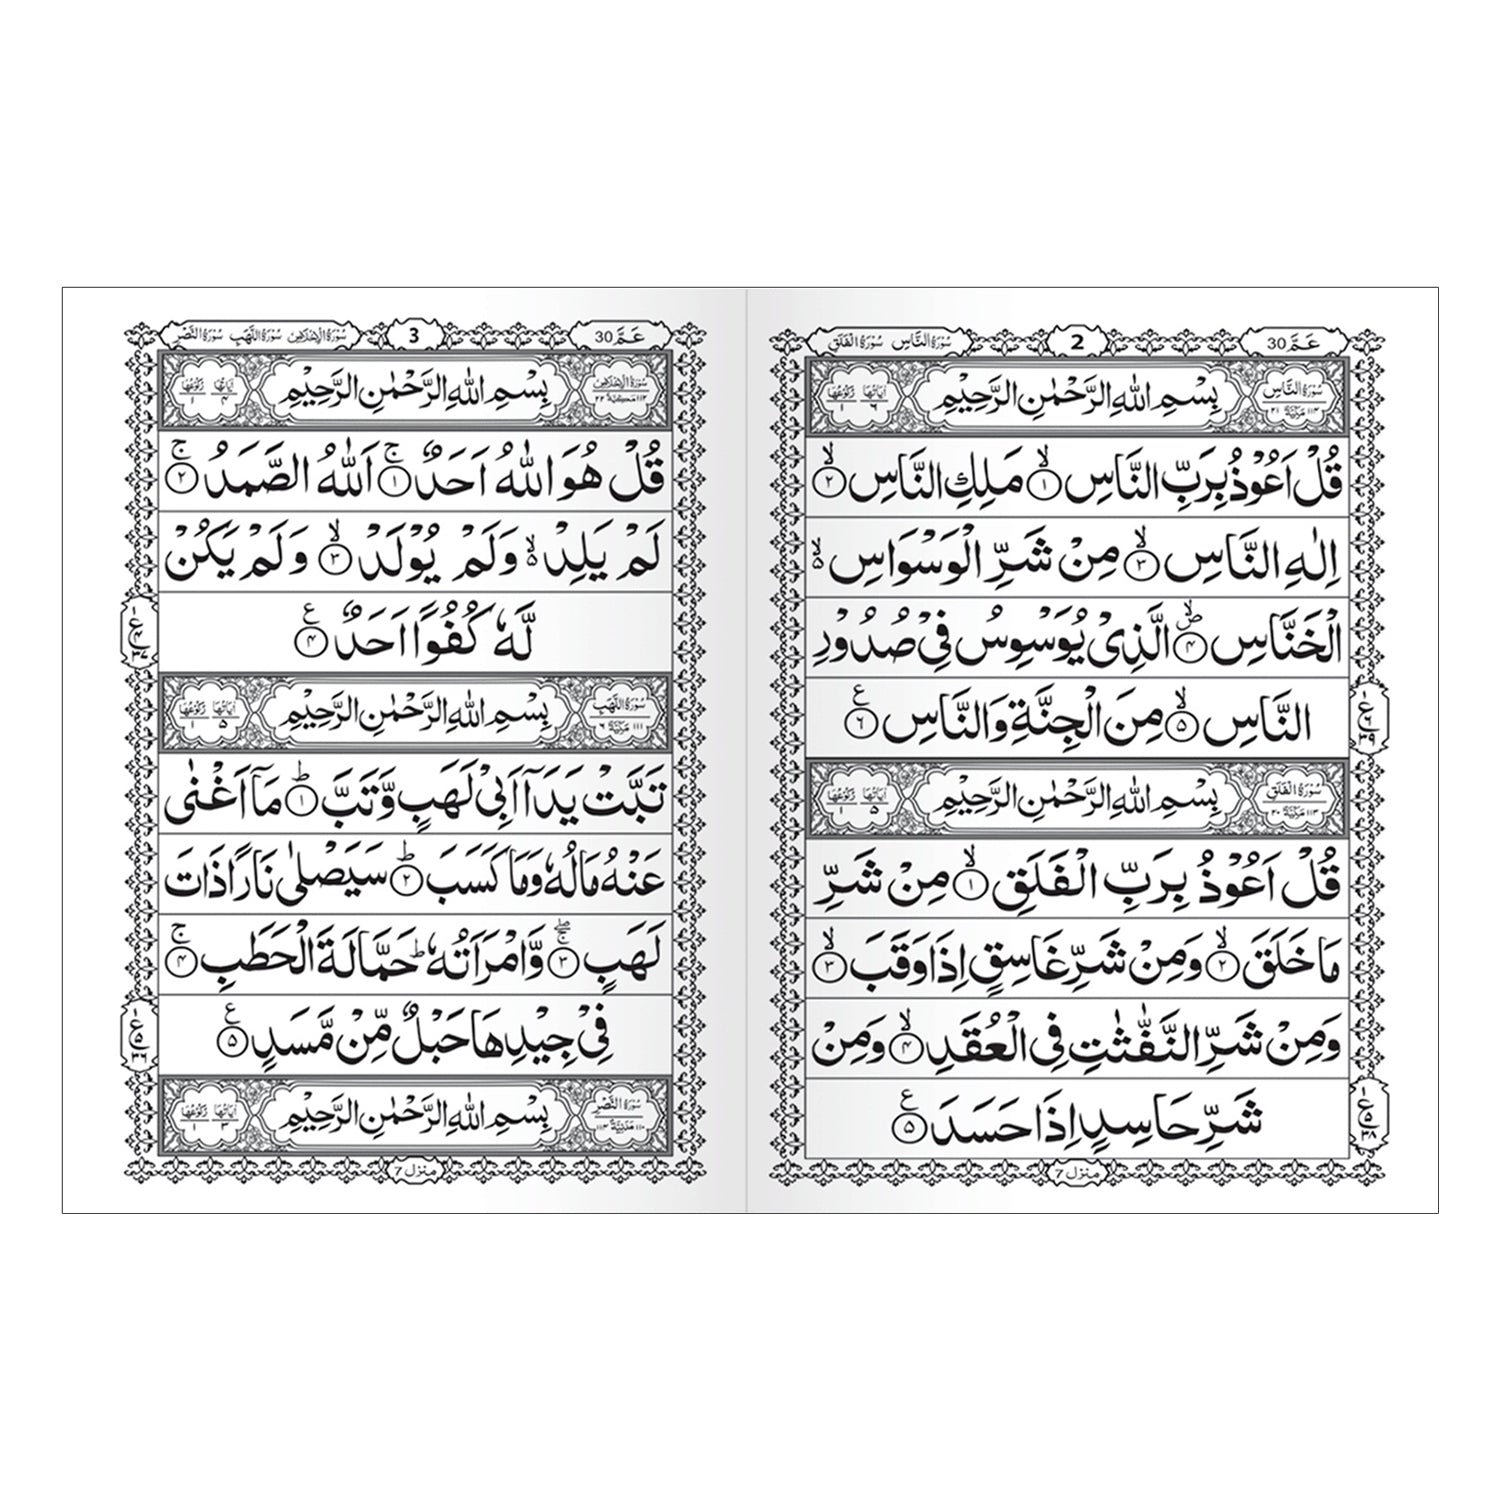 عَمَّ 30
2
سُوْرَةُ النَّاسِ سُوْرَةُ الْفَلَقِ
سُوْرَةُ النَّاسِ ١١٤ مَدَنِيَّةٌ ٢١ بِسْمِ اللّٰهِ الرَّحْمٰنِ الرَّحِيْمِ اٰيَاتُهَا ٦ رُكُوْعُهَا ١
قُلْ اَعُوْذُ بِرَبِّ النَّاسِ ۙ‏﴿۱﴾ مَلِكِ النَّاسِ ۙ‏﴿۲﴾
اِلٰهِ النَّاسِ ۙ‏﴿۳﴾ مِنْ شَرِّ الْوَسْوَاسِ ۙ۬
الْخَنَّاسِ ۪ۙ‏﴿۴﴾ الَّذِیْ یُوَسْوِسُ فِیْ صُدُوْرِ
النَّاسِ ۙ‏﴿۵﴾ مِنَ الْجِنَّةِ وَالنَّاسِ ﴿۶﴾ ع
سُوْرَةُ الْفَلَقِ ١١٣ مَكِّيَّةٌ ٢٠ بِسْمِ اللّٰهِ الرَّحْمٰنِ الرَّحِيْمِ اٰيَاتُهَا ٥ رُكُوْعُهَا ١
قُلْ اَعُوْذُ بِرَبِّ الْفَلَقِ ۙ‏﴿۱﴾ مِنْ شَرِّ
مَا خَلَقَ ۙ‏﴿۲﴾ وَمِنْ شَرِّ غَاسِقٍ اِذَا وَقَبَ ۙ‏﴿۳﴾
وَمِنْ شَرِّ النَّفّٰثٰتِ فِی الْعُقَدِ ۙ‏﴿۴﴾ وَمِنْ
شَرِّ حَاسِدٍ اِذَا حَسَدَ ﴿۵﴾ ع
منزل 7
عَمَّ 30
3
سُوْرَةُ الْاِخْلَاصِ سُوْرَةُ اللَّهَبِ سُوْرَةُ النَّصْرِ
سُوْرَةُ الْاِخْلَاصِ ١١٢ مَكِّيَّةٌ ٢٢ بِسْمِ اللّٰهِ الرَّحْمٰنِ الرَّحِيْمِ اٰيَاتُهَا ٤ رُكُوْعُهَا ١
قُلْ هُوَ اللّٰهُ اَحَدٌ ۚ‏﴿۱﴾ اَللّٰهُ الصَّمَدُ ۚ‏﴿۲﴾
لَمْ یَلِدْ ۙ۬ وَلَمْ یُوْلَدْ ۙ‏﴿۳﴾ وَلَمْ یَكُنْ
لَّهٗ كُفُوًا اَحَدٌ ﴿۴﴾ ع
سُوْرَةُ اللَّهَبِ ١١١ ٦ بِسْمِ اللّٰهِ الرَّحْمٰنِ الرَّحِيْمِ اٰيَاتُهَا ٥ رُكُوْعُهَا ١
تَبَّتْ یَدَاۤ اَبِیْ لَهَبٍ وَّتَبَّ ؕ‏﴿۱﴾ مَاۤ اَغْنٰی
عَنْهُ مَالُهٗ وَمَا كَسَبَ ؕ‏﴿۲﴾ سَیَصْلٰی نَارًا ذَاتَ
لَهَبٍ ۚۖ‏﴿۳﴾ وَّامْرَاَتُهٗ ؕ حَمَّالَةَ الْحَطَبِ ۚ‏﴿۴﴾
فِیْ جِیْدِهَا حَبْلٌ مِّنْ مَّسَدٍ ﴿۵﴾ ع
سُوْرَةُ النَّصْرِ ١١٠ مَدَنِيَّةٌ ١١٤ بِسْمِ اللّٰهِ الرَّحْمٰنِ الرَّحِيْمِ اٰيَاتُهَا ٣ رُكُوْعُهَا ١
منزل 7